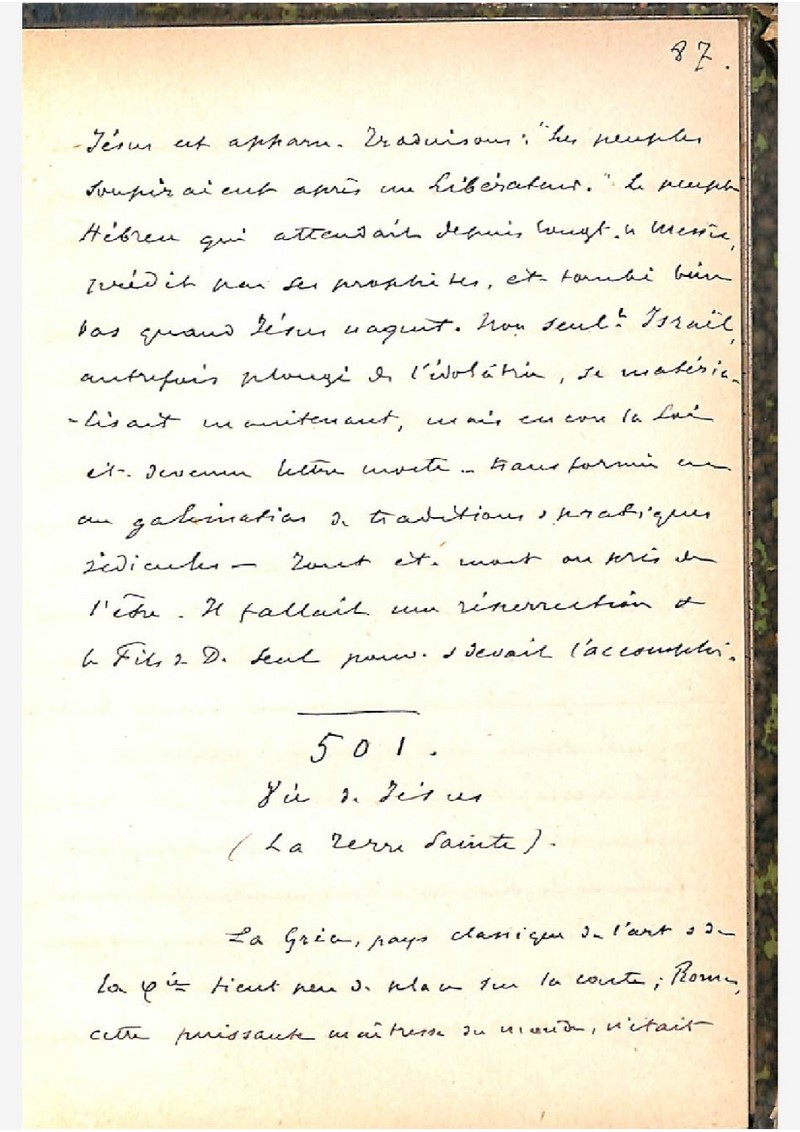 87.
Jésus est apparu. Traduisons: "Les peuples
soupiraient après un Libérateur." Le peuple
Hébreu qui attendait depuis longt. u Messie,
prédit par ses prophètes, ét. tombé bien
bas quand Jésus naquit. Non seul.t Israël,
autrefois plongé ds l'idolâtrie, se matéria-
-lisait maintenant, mais encore la Loi
ét. devenue lettre morte - transformée en
un galimatias de traditions & pratiques
ridicules — Tout ét. mort ou près de
l'être. Il fallait une résurrection &
le Fils d D. seul pouv. & devait l'accomplir.
501.
Vie d. Jésus
(La Terre Sainte).
La Grèce, pays classique de l'art & de
la φie tient peu de place sur la carte; Rome,
cette puissante maîtresse du monde, n'était